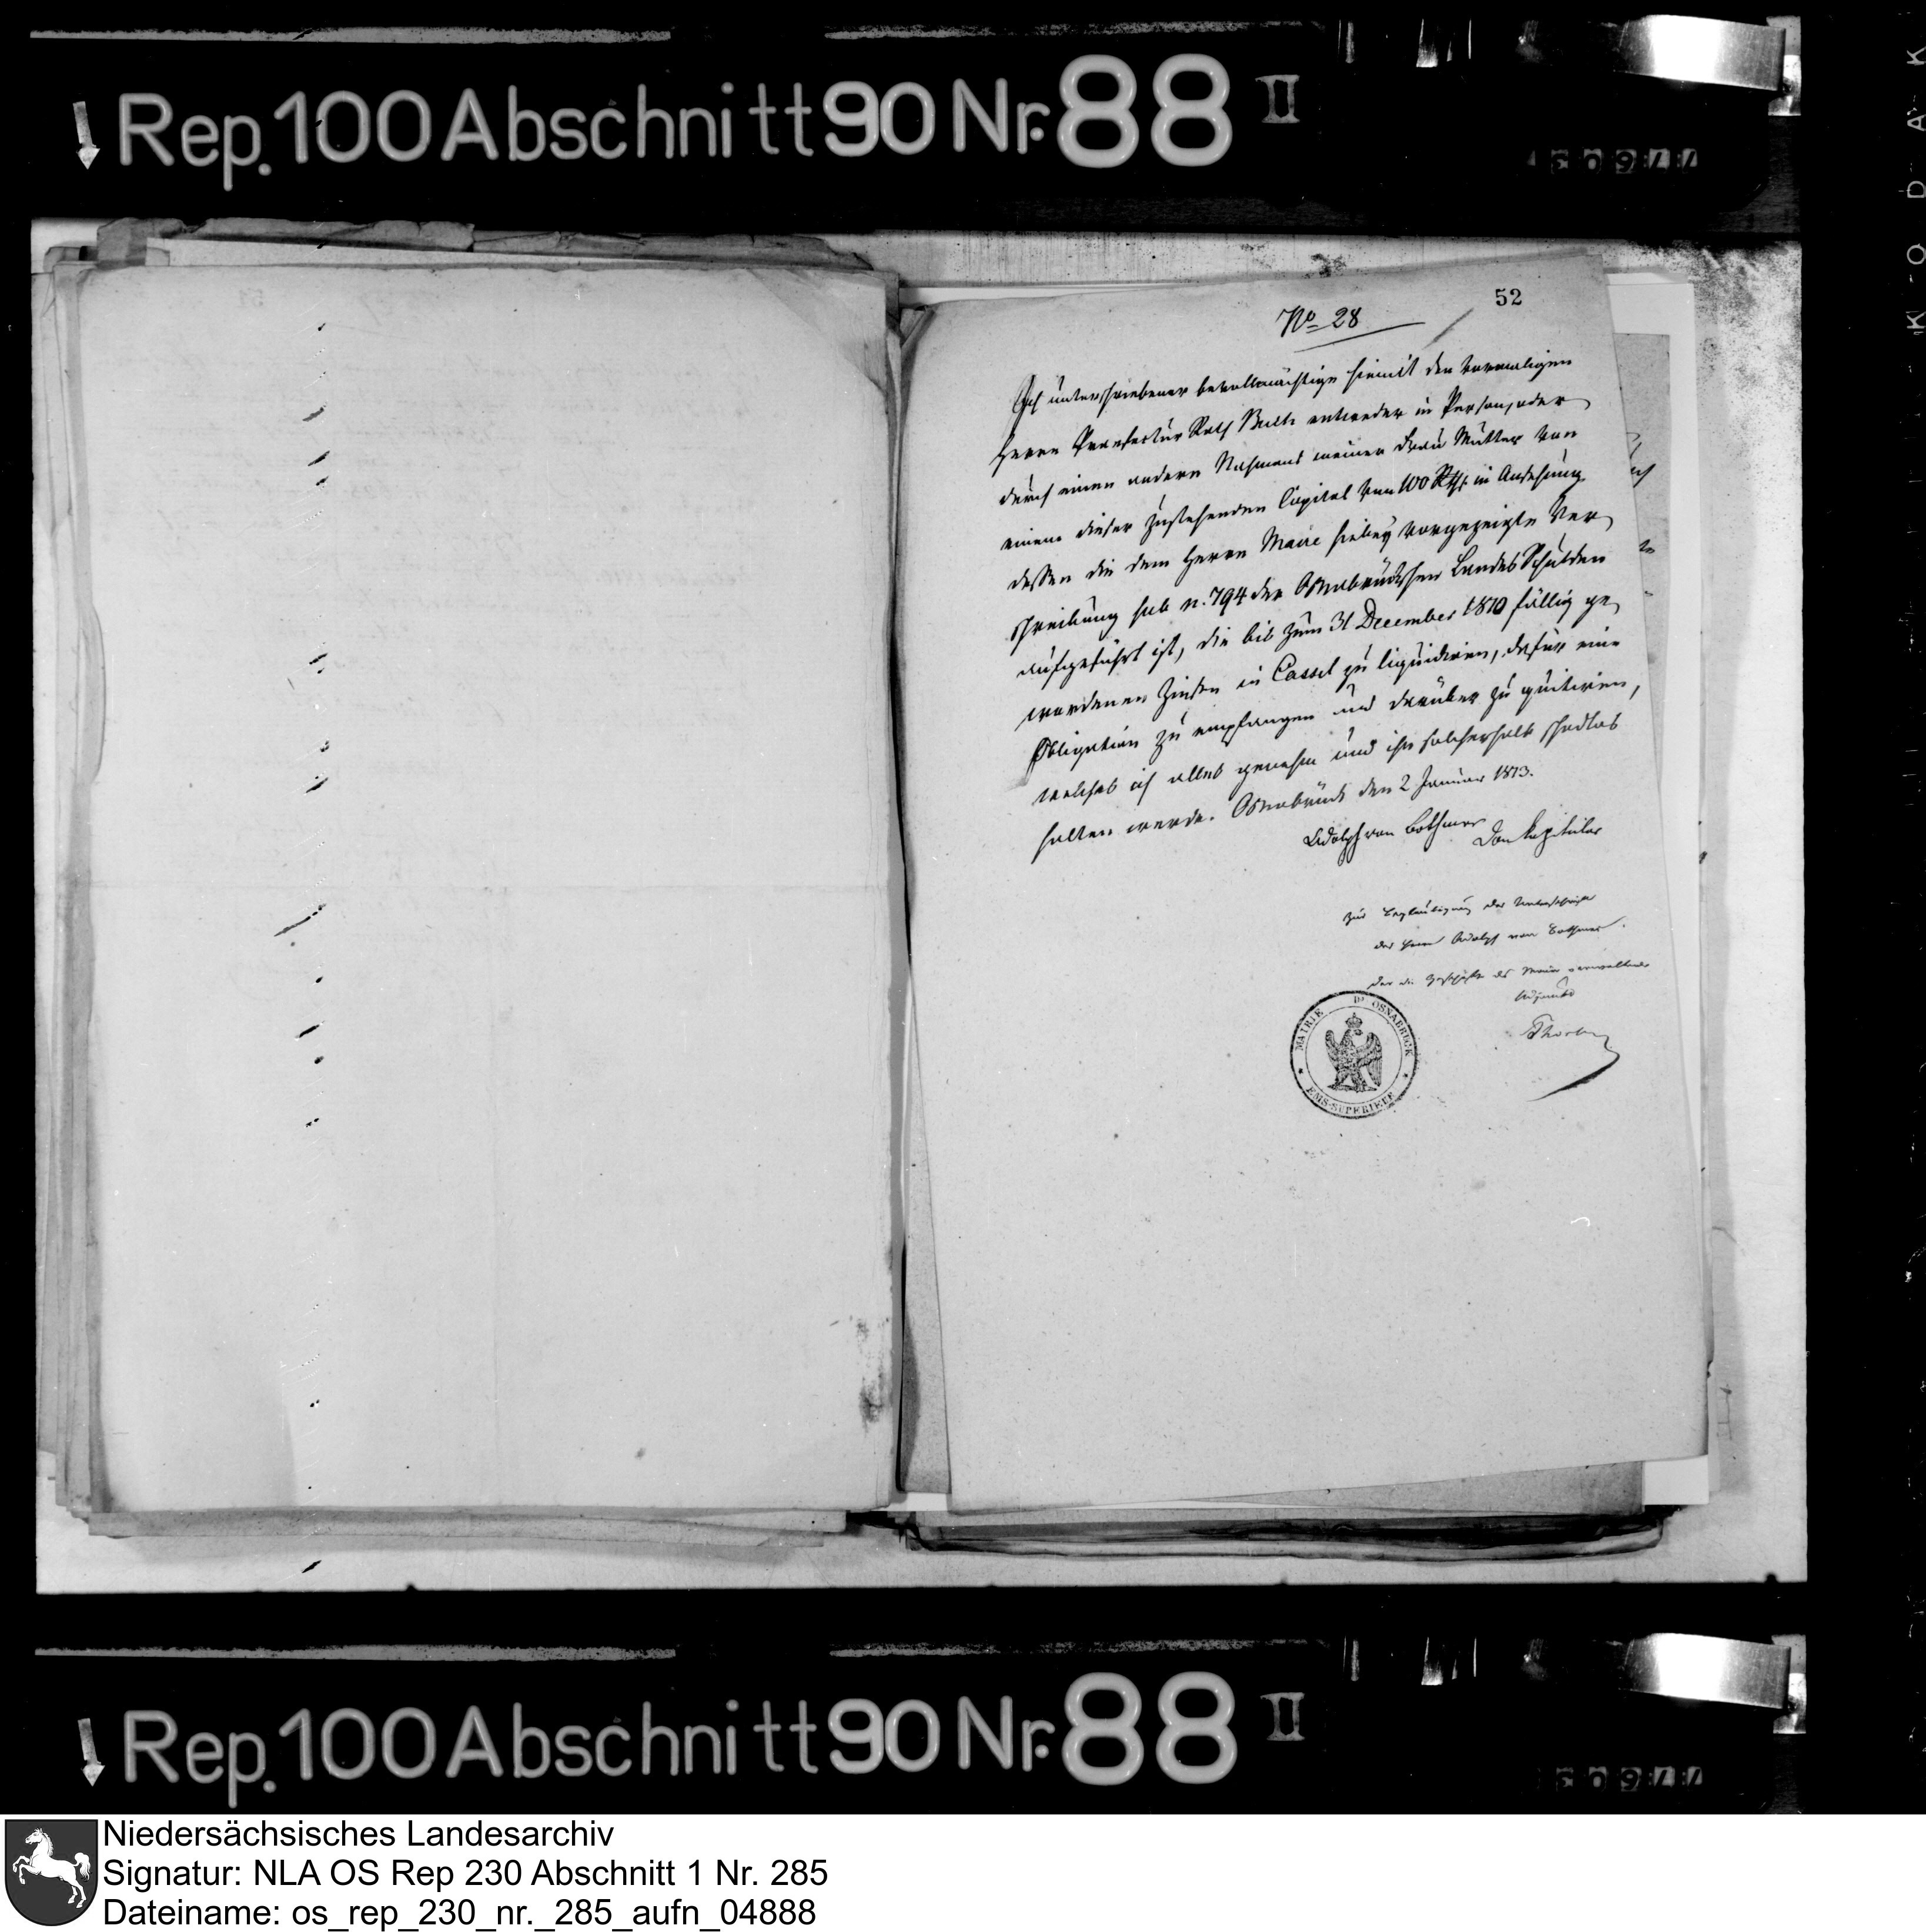 Rep. 100 Abschnitt 90 Nr. 88 II
52
No 28
Ich unterschriebener bevollmächtige hiemit den vormaligen
Herrn Praefectur Rath entweder in Person, oder
durch einen andern Nahmens meiner Frau Mutter von
einem dieser zustehenden Capital von 100 Rthlr in Ansehung
dessen die dem Herrn Maire hiebey vorgezeigte Ver
schreibung sub n. 794 der Osnabrückschen Landes Schulden
aufgeführt ist, die bis zum 31 December 1810 fällig ge
wordenen Zinsen in Cassel zu liquidiren, dafür eine
Obligation zu empfangen und darüber zu quitiren,
welches ich alles genehm und ihn solcherhalb schadlos
halten werde. Osnabrück den 2 Januar 1813.
Adolph von Bothmer Domkapitular
Zur Beglaubigung der Unterschrift
des Herrn Adolph von Bothmer.
Der die Geschäfte des Maire verwaltende
Adjunkt
MAIRIE D' OSNABRÜCK
EMS-SUPERIEUR
Rep. 100 Abschnitt 90 Nr. 88 II
Niedersächsisches Landesarchiv
Signatur: NLA OS Rep 230 Abschnitt 1 Nr. 285
Dateiname: os_rep_230_nr._285_aufn_04888